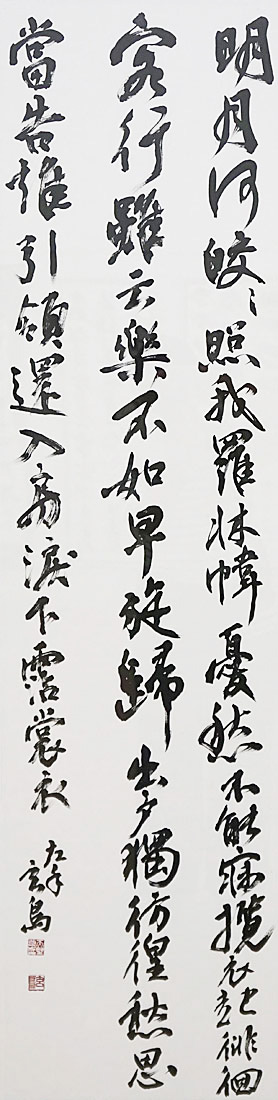 明月何皎〻照我羅牀幃憂愁不能寐攬衣起徘徊
客行雖云樂不如早旋歸出戶獨彷徨愁思
當告誰引領還入房淚下霑裳衣
左手
玄鳥